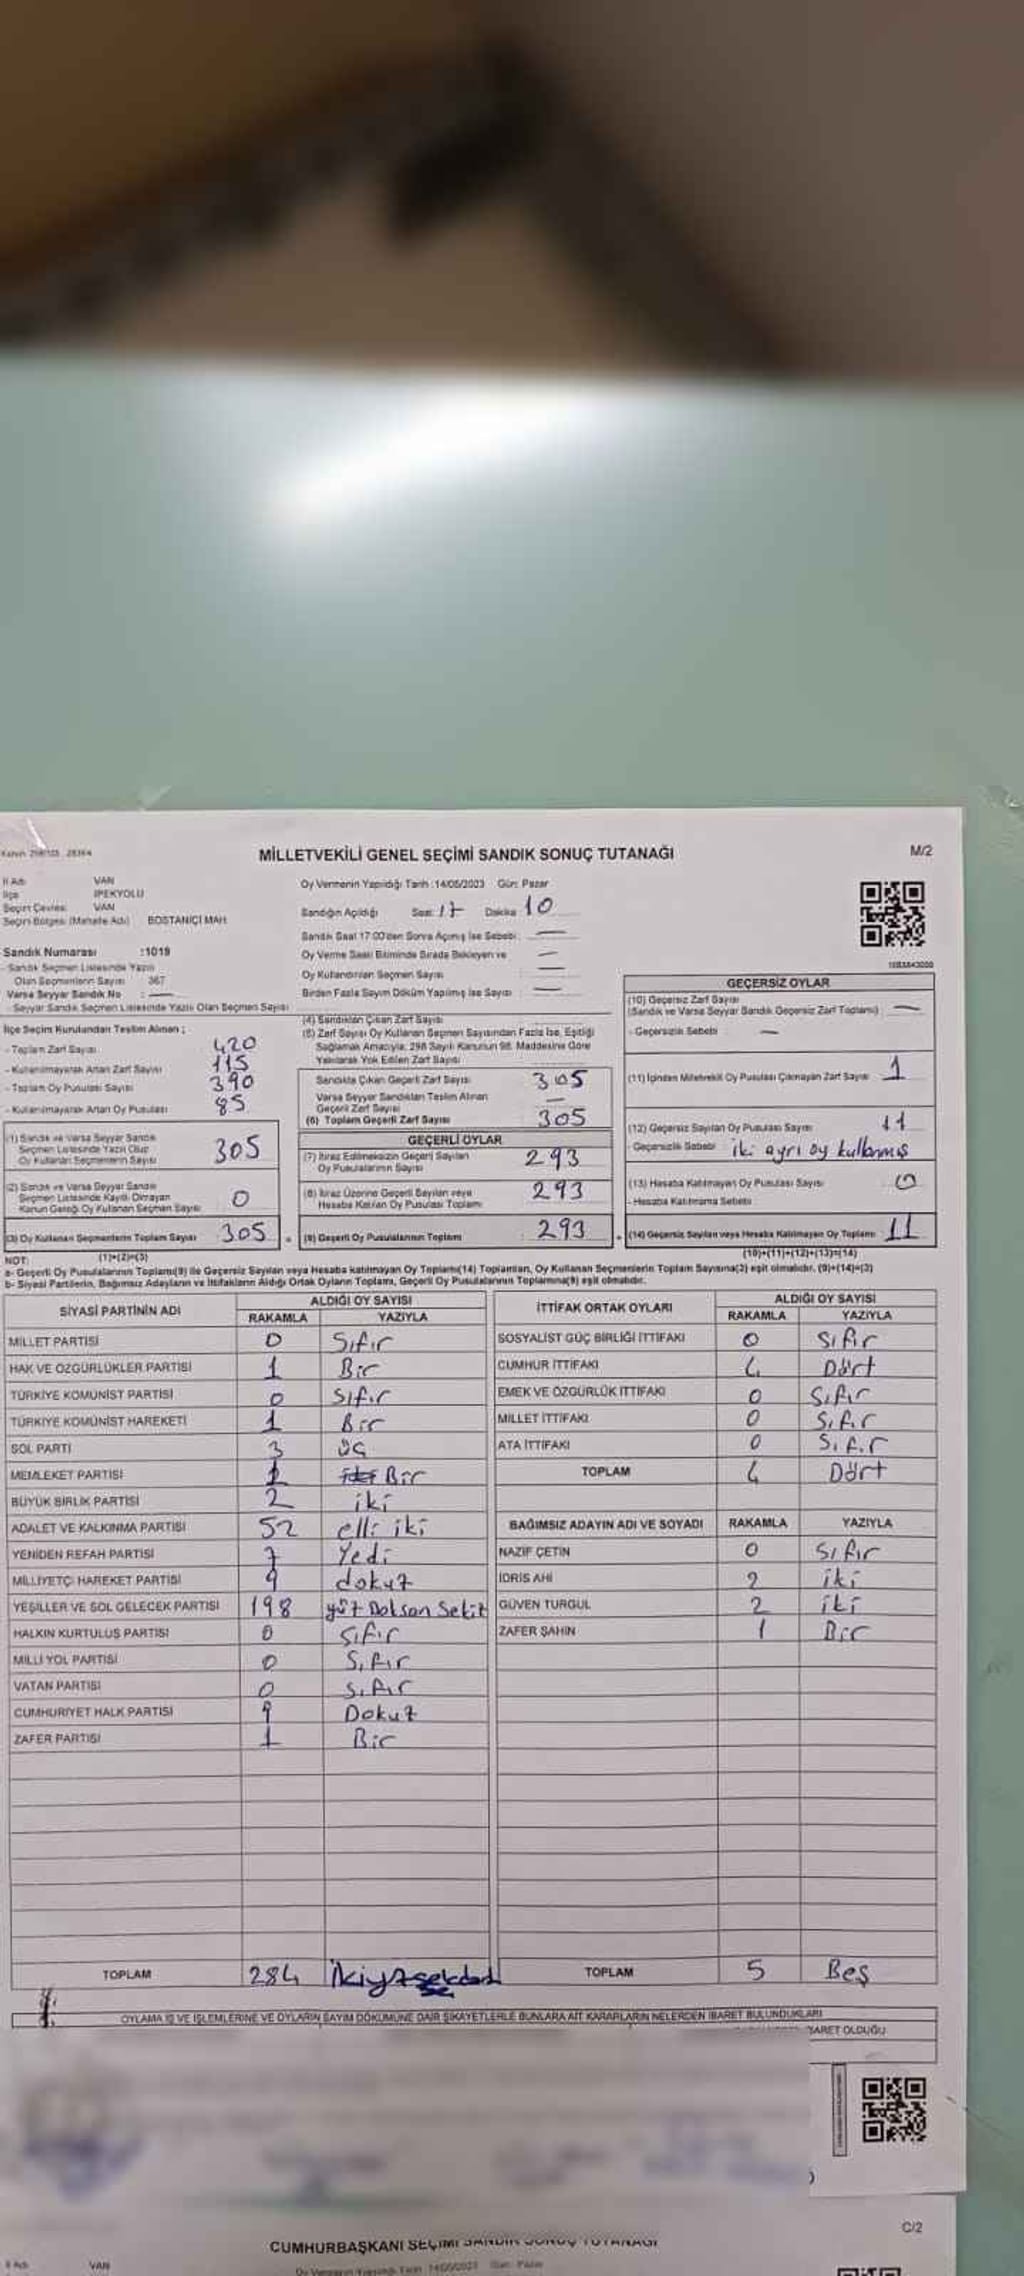 MİLLETVEKİLİ GENEL SEÇİMİ SANDIK SONUÇ TUTANAĞI
M/2
İl Adı VAN
İlçe İPEKYOLU
Seçim Çevresi: VAN
Seçim Bölgesi (Mahalle Adı) BOSTANİÇİ MAH.
Oy Vermenin Yapıldığı Tarih :14/05/2023 Gün: Pazar
Sandığın Açıldığı Saat: 17 Dakika 10
Sandık Saat 17:00'den Sonra Açılmış İse Sebebi: —
Oy Verme Saati Bitiminde Sırada Bekleyen ve —
Oy Kullandırılan Seçmen Sayısı —
Birden Fazla Sayım Döküm Yapılmış İse Sayısı : —
Sandık Numarası :1019
- Sandık Seçmen Listesinde Yazılı
Olan Seçmenlerin Sayısı : 367
Varsa Seyyar Sandık No : —
- Seyyar Sandık Seçmen Listesinde Yazılı Olan Seçmen Sayısı
İlçe Seçim Kurulundan Teslim Alınan ;
- Toplam Zarf Sayısı 420
- Kullanılmayarak Artan Zarf Sayısı 115
- Toplam Oy Pusulası Sayısı 390
- Kullanılmayarak Artan Oy Pusulası 85
(1) Sandık ve Varsa Seyyar Sandık
Seçmen Listesinde Yazılı Olup
Oy Kullanan Seçmenlerin Sayısı 305
(2) Sandık ve Varsa Seyyar Sandık
Seçmen Listesinde Kayıtlı Olmayan
Kanun Gereği Oy Kullanan Seçmen Sayısı 0
(3) Oy Kullanan Seçmenlerin Toplam Sayısı 305
(1)+(2)=(3)
(4) Sandıktan Çıkan Zarf Sayısı
(5) Zarf Sayısı Oy Kullanan Seçmen Sayısından Fazla İse, Eşitliği
Sağlamak Amacıyla; 298 Sayılı Kanunun 98. Maddesine Göre
Yakılarak Yok Edilen Zarf Sayısı
Sandıkta Çıkan Geçerli Zarf Sayısı 305
Varsa Seyyar Sandıktan Teslim Alınan
Geçerli Zarf Sayısı —
(6) Toplam Geçerli Zarf Sayısı 305
GEÇERLİ OYLAR
(7) İtiraz Edilmeksizin Geçerli Sayılan
Oy Pusulalarının Sayısı 293
(8) İtiraz Üzerine Geçerli Sayılan veya
Hesaba Katılan Oy Pusulası Toplamı 293
(9) Geçerli Oy Pusulalarının Toplamı : 293
GEÇERSİZ OYLAR
(10) Geçersiz Zarf Sayısı
(Sandık ve Varsa Seyyar Sandık Geçersiz Zarf Toplamı) —
- Geçersizlik Sebebi —
(11) İçinden Milletvekili Oy Pusulası Çıkmayan Zarf Sayısı 1
(12) Geçersiz Sayılan Oy Pusulası Sayısı 11
Geçersizlik Sebebi iki ayrı oy kullanmış
(13) Hesaba Katılmayan Oy Pusulası Sayısı 0
- Hesaba Katılmama Sebebi
(14) Geçersiz Sayılan veya Hesaba Katılmayan Oy Toplamı 11
(10)+(11)+(12)+(13)=(14)
NOT:
a- Geçerli Oy Pusulalarının Toplamı(9) ile Geçersiz Sayılan veya Hesaba katılmayan Oy Toplamı(14) Toplamları, Oy Kullanan Seçmenlerin Toplam Sayısına(3) eşit olmalıdır. (9)+(14)=(3)
b- Siyasi Partilerin, Bağımsız Adayların ve İttifakların Aldığı Ortak Oyların Toplamı, Geçerli Oy Pusulalarının Toplamına(9) eşit olmalıdır.
SİYASİ PARTİNİN ADI ALDIĞI OY SAYISI
RAKAMLA YAZIYLA
MİLLET PARTİSİ 0 Sıfır
HAK VE ÖZGÜRLÜKLER PARTİSİ 1 Bir
TÜRKİYE KOMÜNİST PARTİSİ 0 Sıfır
TÜRKİYE KOMÜNİST HAREKETİ 1 Bir
SOL PARTİ 3 üç
MEMLEKET PARTİSİ 1 Bir
BÜYÜK BİRLİK PARTİSİ 2 iki
ADALET VE KALKINMA PARTİSİ 52 elli iki
YENİDEN REFAH PARTİSİ 7 Yedi
MİLLİYETÇİ HAREKET PARTİSİ 9 dokuz
YEŞİLLER VE SOL GELECEK PARTİSİ 198 yüz Doksan Sekiz
HALKIN KURTULUŞ PARTİSİ 0 Sıfır
MİLLİ YOL PARTİSİ 0 Sıfır
VATAN PARTİSİ 0 Sıfır
CUMHURİYET HALK PARTİSİ 9 Dokuz
ZAFER PARTİSİ 1 Bir
TOPLAM 284
İTTİFAK ORTAK OYLARI ALDIĞI OY SAYISI
RAKAMLA YAZIYLA
SOSYALİST GÜÇ BİRLİĞİ İTTİFAKI 0 Sıfır
CUMHUR İTTİFAKI 4 Dört
EMEK VE ÖZGÜRLÜK İTTİFAKI 0 Sıfır
MİLLET İTTİFAKI 0 Sıfır
ATA İTTİFAKI 0 Sıfır
TOPLAM 4 Dört
BAĞIMSIZ ADAYIN ADI VE SOYADI RAKAMLA YAZIYLA
NAZİF ÇETİN 0 Sıfır
İDRİS AHİ 2 iki
GÜVEN TURGUL 2 iki
ZAFER ŞAHİN 1 Bir
TOPLAM 5 Beş
OYLAMA İŞ VE İŞLEMLERİNE VE OYLARIN SAYIM DÖKÜMÜNE DAİR ŞİKAYETLERLE BUNLARA AİT KARARLARIN NELERDEN İBARET BULUNDUKLARI
OLDUĞU
C/2
CUMHURBAŞKANI SEÇİMİ SANDIK SONUÇ TUTANAĞI
İl Adı VAN
14/05/2023 Gün: Pazar